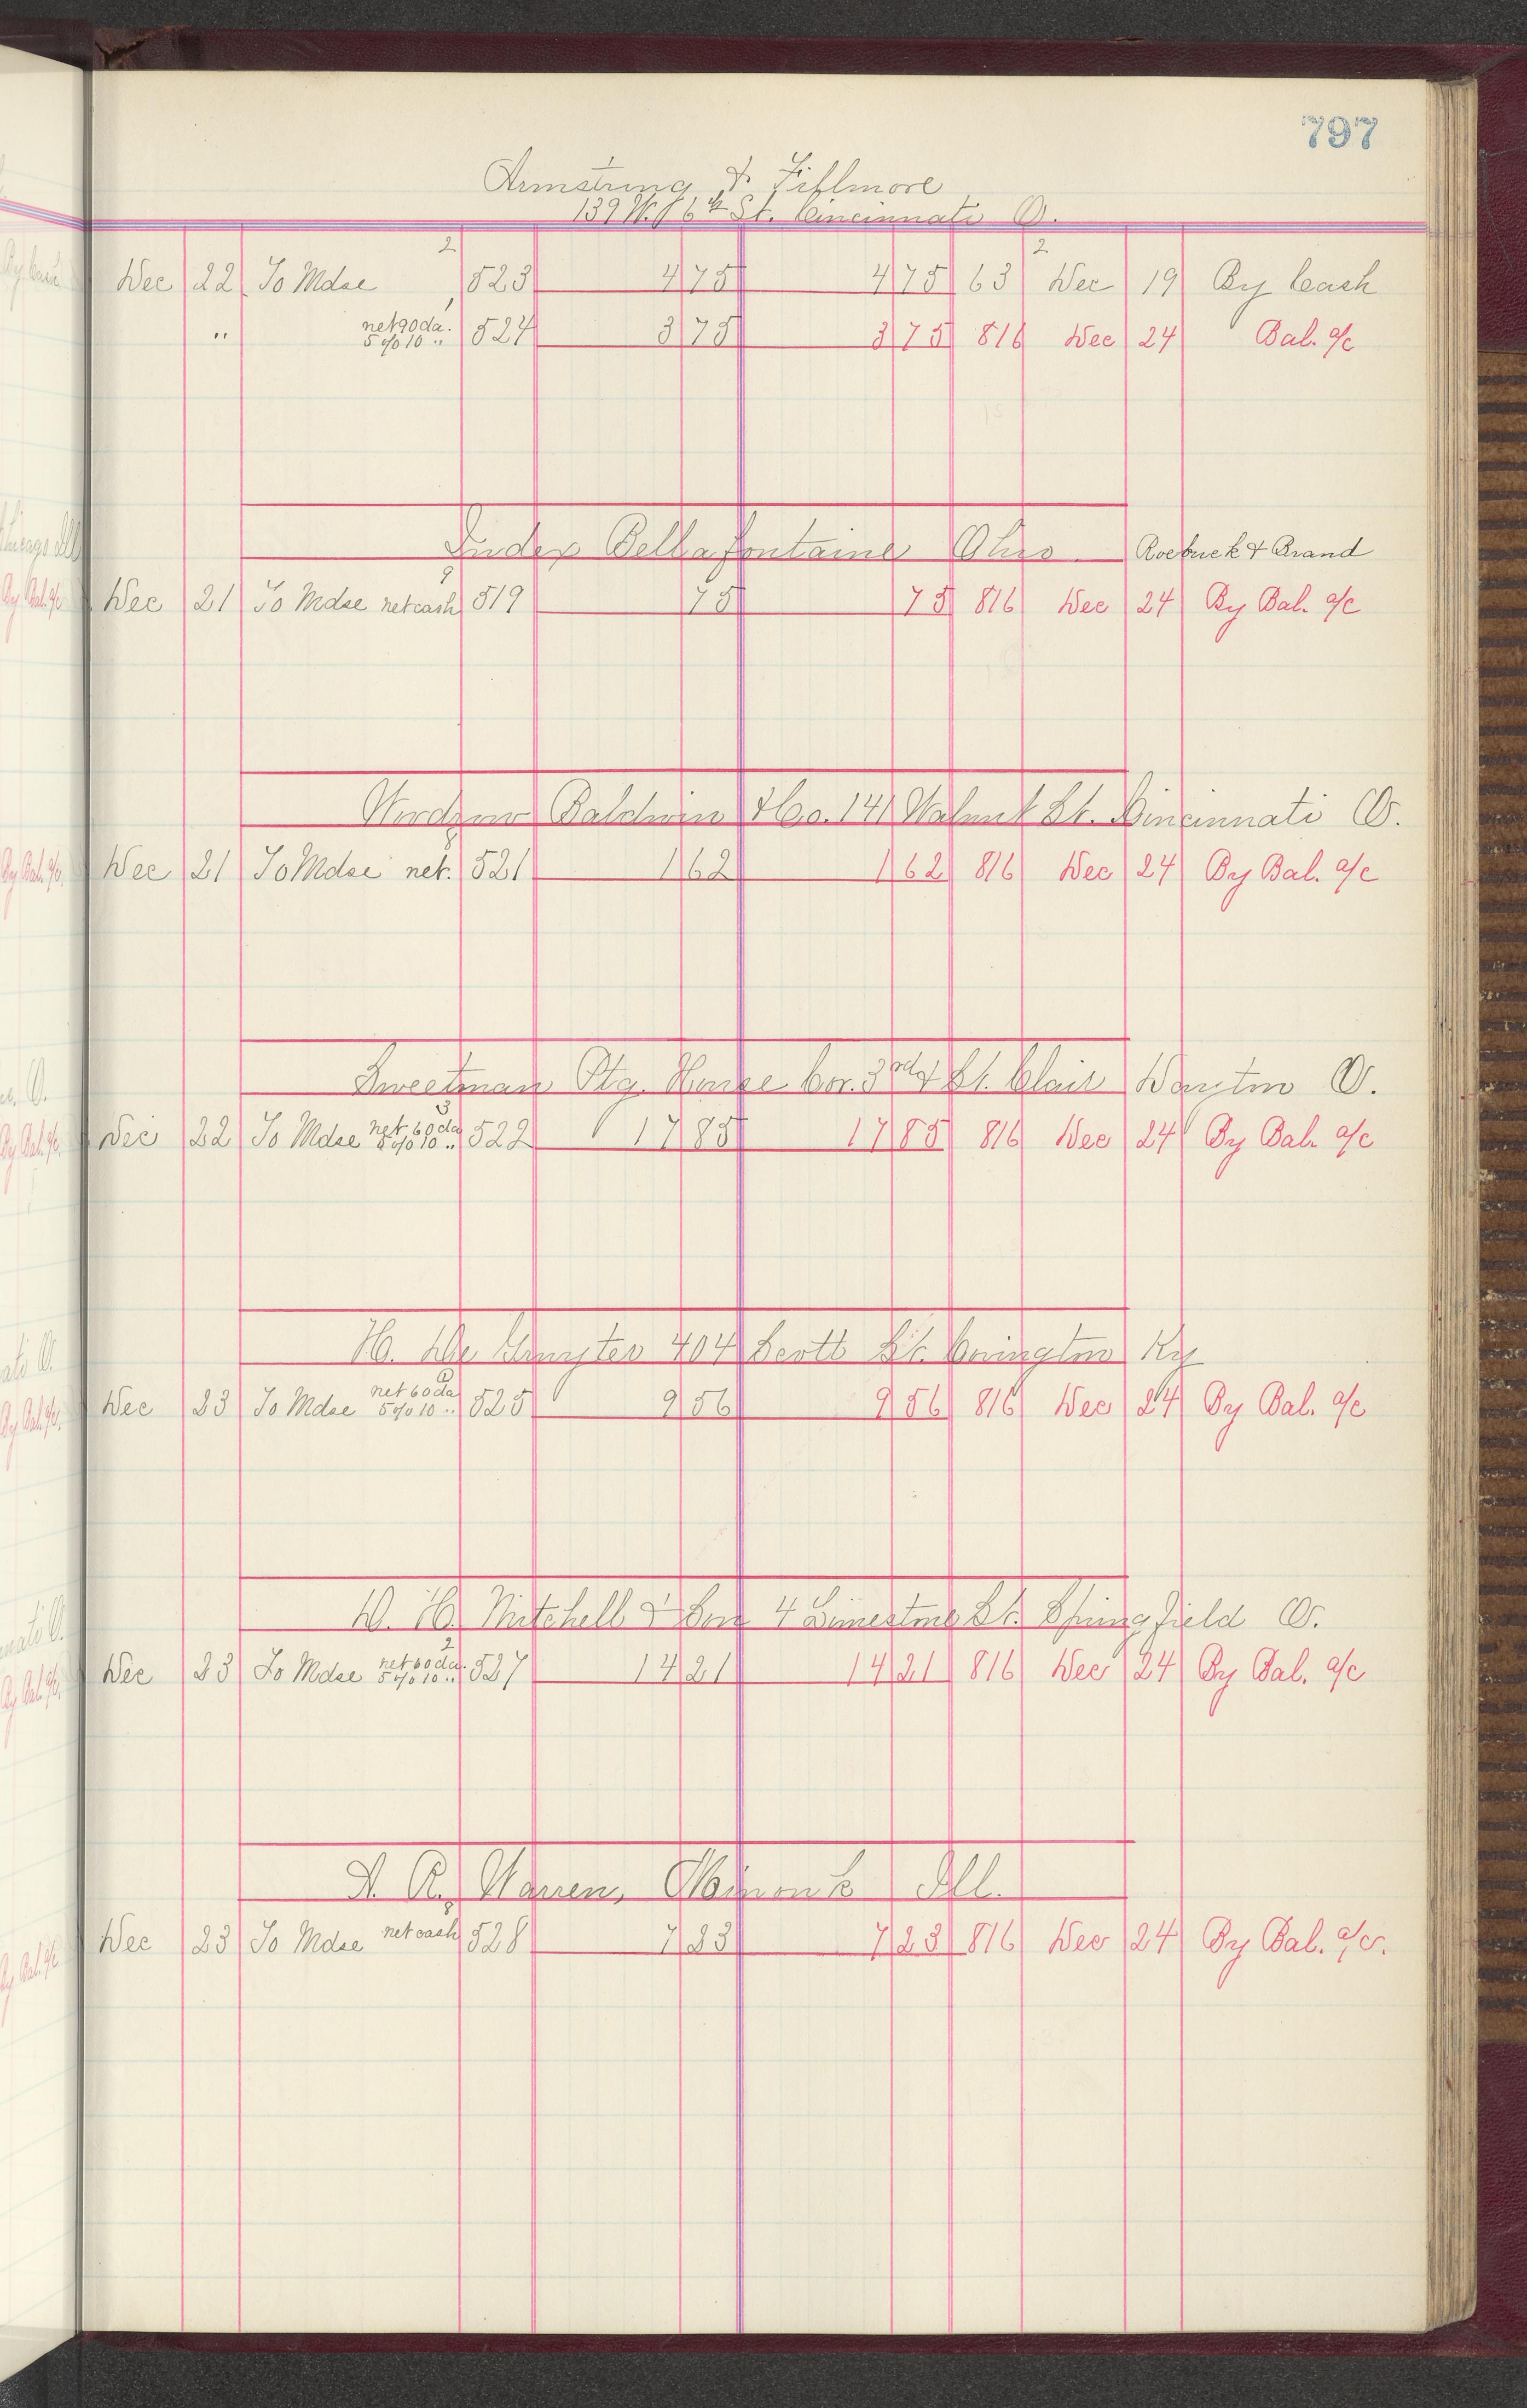 797
Armstrong & Fillmore
139 W. 6th St. Cincinnati O.
2 2
Dec 22 To Mdse 523 4 75 4 75 63 Dec 19 By Cash
" net 90 da. 5% 10 " 524 3 75 3 75 816 Dec 24 Bal. a/c
Index Bellafontaine Ohio Roebuck & Brand
9
Dec 21 To Mdse net cash 519 75 75 816 Dec 24 By Bal. a/c
Woodrow Baldwin & Co. 141 Walnut St. Cincinnati O.
Dec 21 To Mdse net. 521 1 62 1 62 816 Dec 24 By Bal. a/c
Sweetman Ptg. House Cor. 3rd & St. Clair Dayton O.
3
Dec 22 To Mdse net 60 da 5% 10 " 522 17 85 17 85 816 Dec 24 By Bal. a/c
H. De Gruyter 404 Scott St. Covington Ky
Dec 23 To Mdse net 60 da 5% 10 " 525 9 56 9 56 816 Dec 24 By Bal. a/c
D. H. Mitchell & Son 4 Limestone St. Springfield O.
2
Dec 23 To Mdse net 60 da. 5% 10 " 527 14 21 14 21 816 Dec 24 By Bal. a/c
A. R. Warren, Minonk Ill.
8
Dec 23 To Mdse net cash 528 7 23 7 23 816 Dec 24 By Bal. a/c.